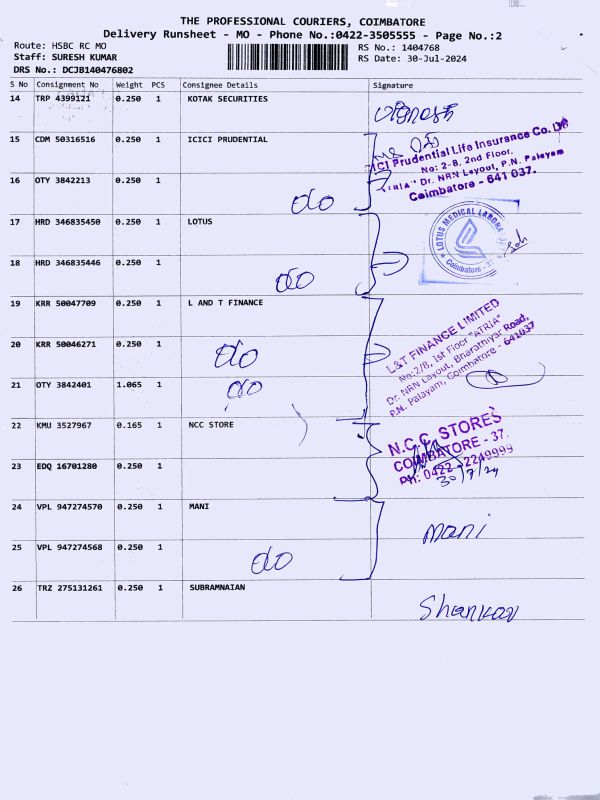 THE PROFESSIONAL COURIERS, COIMBATORE
Delivery Runsheet - MO - Phone No.:0422-3505555 - Page No.:2
Route: HSBC RC MO
RS No.: 1404768
Staff: SURESH KUMAR
RS Date: 30-Jul-2024
DRS No.: DCJB140476802
S No Consignment No Weight PCS Consignee Details Signature
14 TRP 4399121 0.250 1 KOTAK SECURITIES
Vignesh
15 CDM 50316516 0.250 1 ICICI PRUDENTIAL
ICI Prudential Life Insurance Co. Ltd
No: 2-8, 2nd Floor,
Dr. NRN Layout, P.N. Palayam
Coimbatore - 641 037.
16 OTY 3842213 0.250 1
do
17 HRD 346835450 0.250 1 LOTUS
LOTUS MEDICAL LABORA
Coimbatore - 37
18 HRD 346835446 0.250 1
do
19 KRR 50047709 0.250 1 L AND T FINANCE
L&T FINANCE LIMITED
No:2/8, 1st Floor "ATRIA"
Dr. NRN Layout, Bharathiyar Road,
P.N. Palayam, Coimbatore - 641037
20 KRR 50046271 0.250 1
do
21 OTY 3842401 1.065 1
do
22 KMU 3527967 0.165 1 NCC STORE
N.C.C. STORES
COIMBATORE - 37.
PH: 0422 - 2249999
30/7/24
23 EDQ 16701280 0.250 1
24 VPL 947274570 0.250 1 MANI
mani
25 VPL 947274568 0.250 1
do
26 TRZ 275131261 0.250 1 SUBRAMNAIAN
Shankar